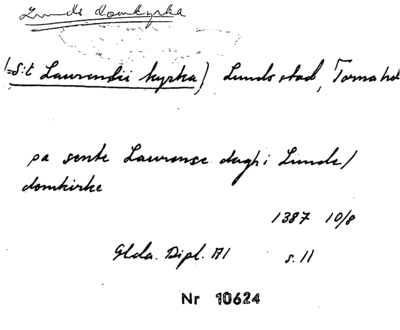 Lunds domkyrka
(=S:t Laurentii kyrka) Lunds stad, Torna hd
pa sente Laurensc dagh i Lunde/
domkirke
1387 10/8
Glda. Dipl. AI s. 11
Nr 10624